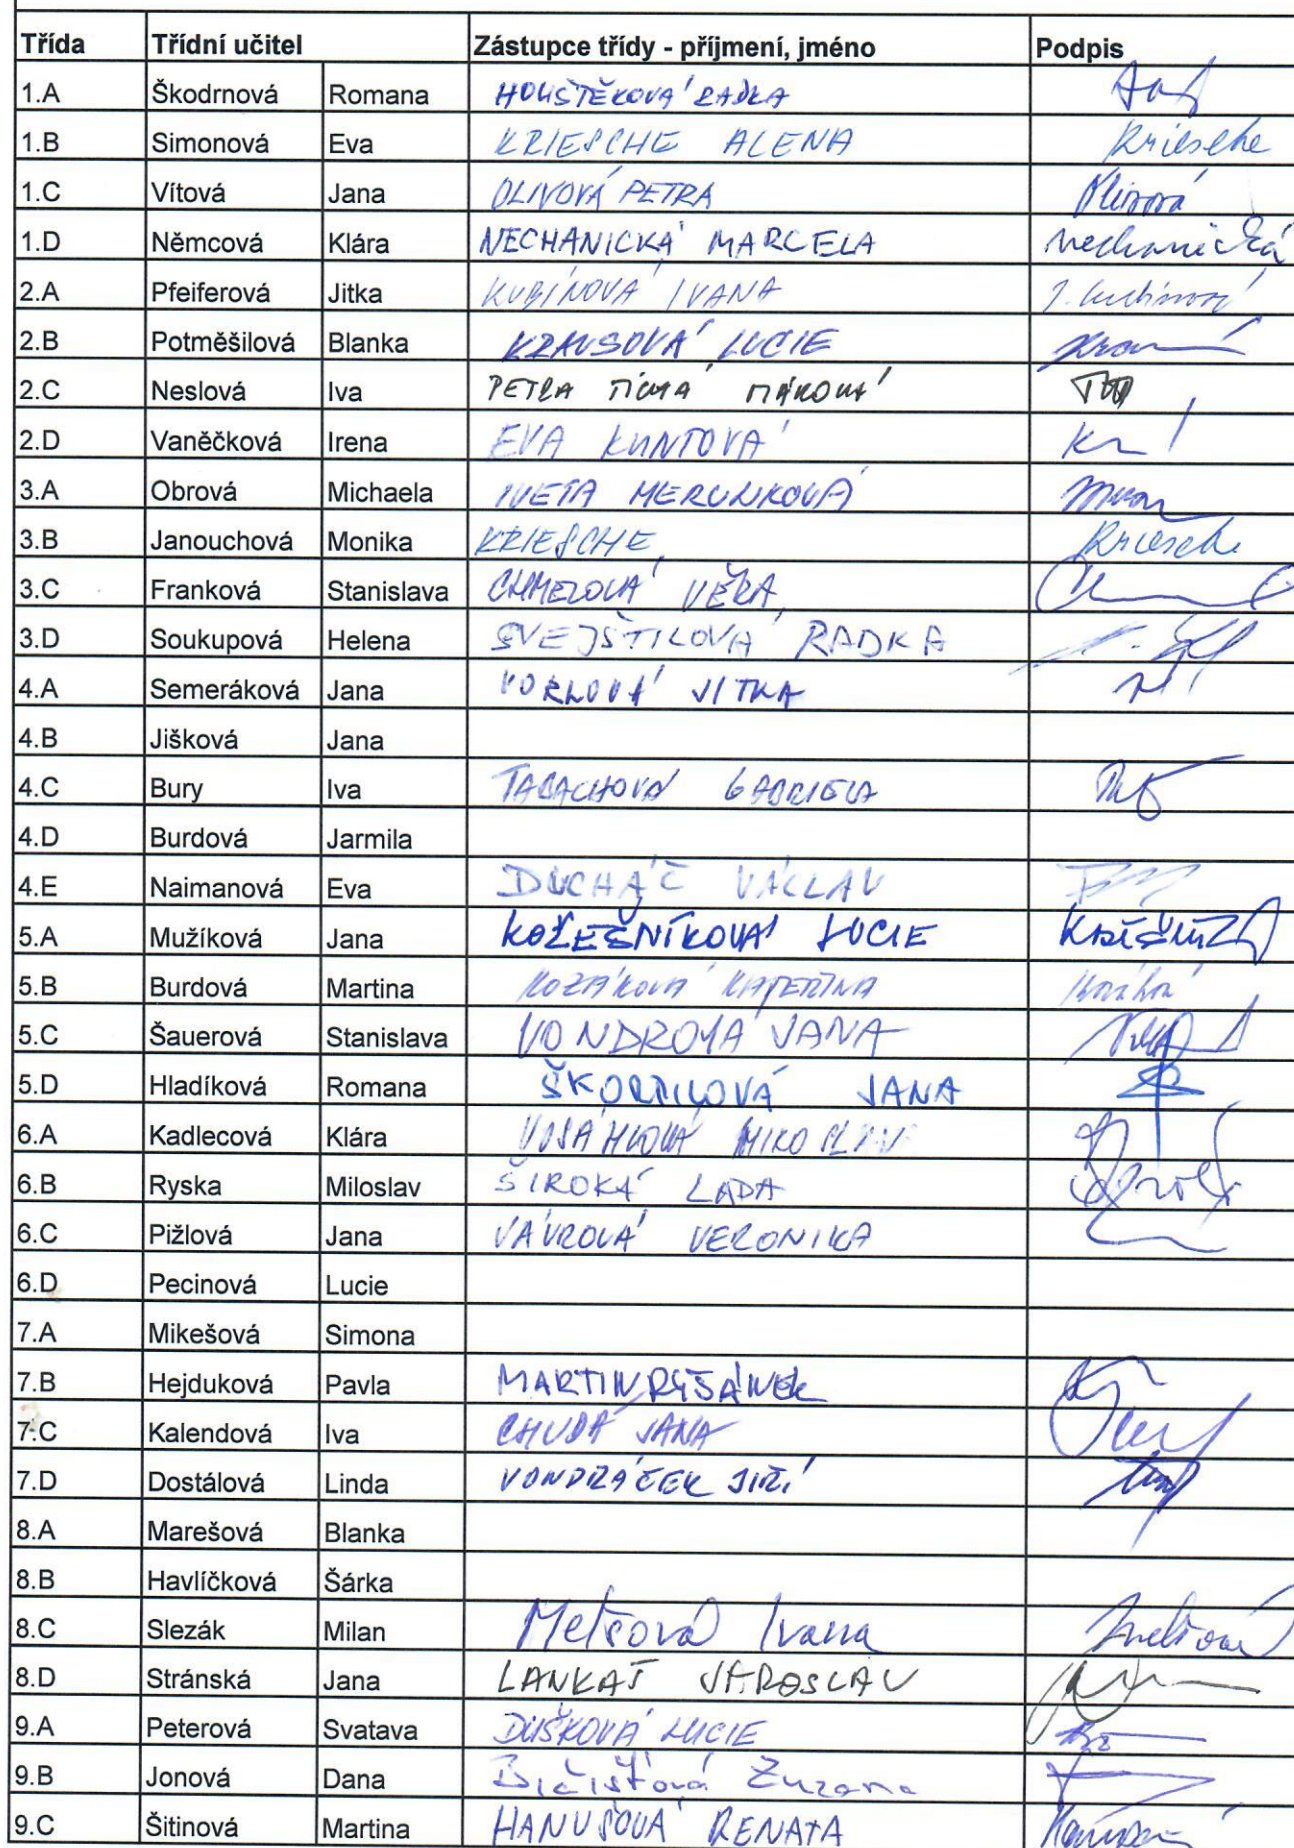 Třída Třídní učitel Zástupce třídy - příjmení, jméno Podpis
1.A Škodrnová Romana HOUŠTĚKOVÁ RADKA
1.B Simonová Eva KRIESCHE ALENA Kriesche
1.C Vítová Jana OLIVOVÁ PETRA Olivová
1.D Němcová Klára NECHANICKÁ MARCELA Nechanická
2.A Pfeiferová Jitka KUBÍNOVÁ IVANA
2.B Potměšilová Blanka KRAUSOVÁ LUCIE
2.C Neslová Iva PETRA TICHÁ
2.D Vaněčková Irena EVA KUNTOVÁ
3.A Obrová Michaela IVETA MERUNKOVÁ
3.B Janouchová Monika KRIESCHE Kriesche
3.C Franková Stanislava CHMELOVÁ VĚRA
3.D Soukupová Helena SVEJŠTILOVÁ RADKA
4.A Semeráková Jana VORLOVÁ JITKA
4.B Jišková Jana
4.C Bury Iva TABACHOVÁ GABRIELA
4.D Burdová Jarmila
4.E Naimanová Eva DUCHÁČ VÁCLAV
5.A Mužíková Jana KOŽEŠNÍKOVÁ LUCIE
5.B Burdová Martina KOZÁKOVÁ KATEŘINA
5.C Šauerová Stanislava VONDROVÁ JANA
5.D Hladíková Romana ŠKORPILOVÁ JANA
6.A Kadlecová Klára
6.B Ryska Miloslav ŠIROKÁ LADA
6.C Pižlová Jana VÁVROVÁ VERONIKA
6.D Pecinová Lucie
7.A Mikešová Simona
7.B Hejduková Pavla MARTIN RYŠÁNEK
7.C Kalendová Iva CHUDÁ JANA
7.D Dostálová Linda VONDRÁČEK JIŘÍ
8.A Marešová Blanka
8.B Havlíčková Šárka
8.C Slezák Milan Ivana
8.D Stránská Jana LANKAŠ JAROSLAV
9.A Peterová Svatava DUŠKOVÁ LUCIE
9.B Jonová Dana Bičišťová Zuzana
9.C Šitinová Martina HANUŠOVÁ RENATA